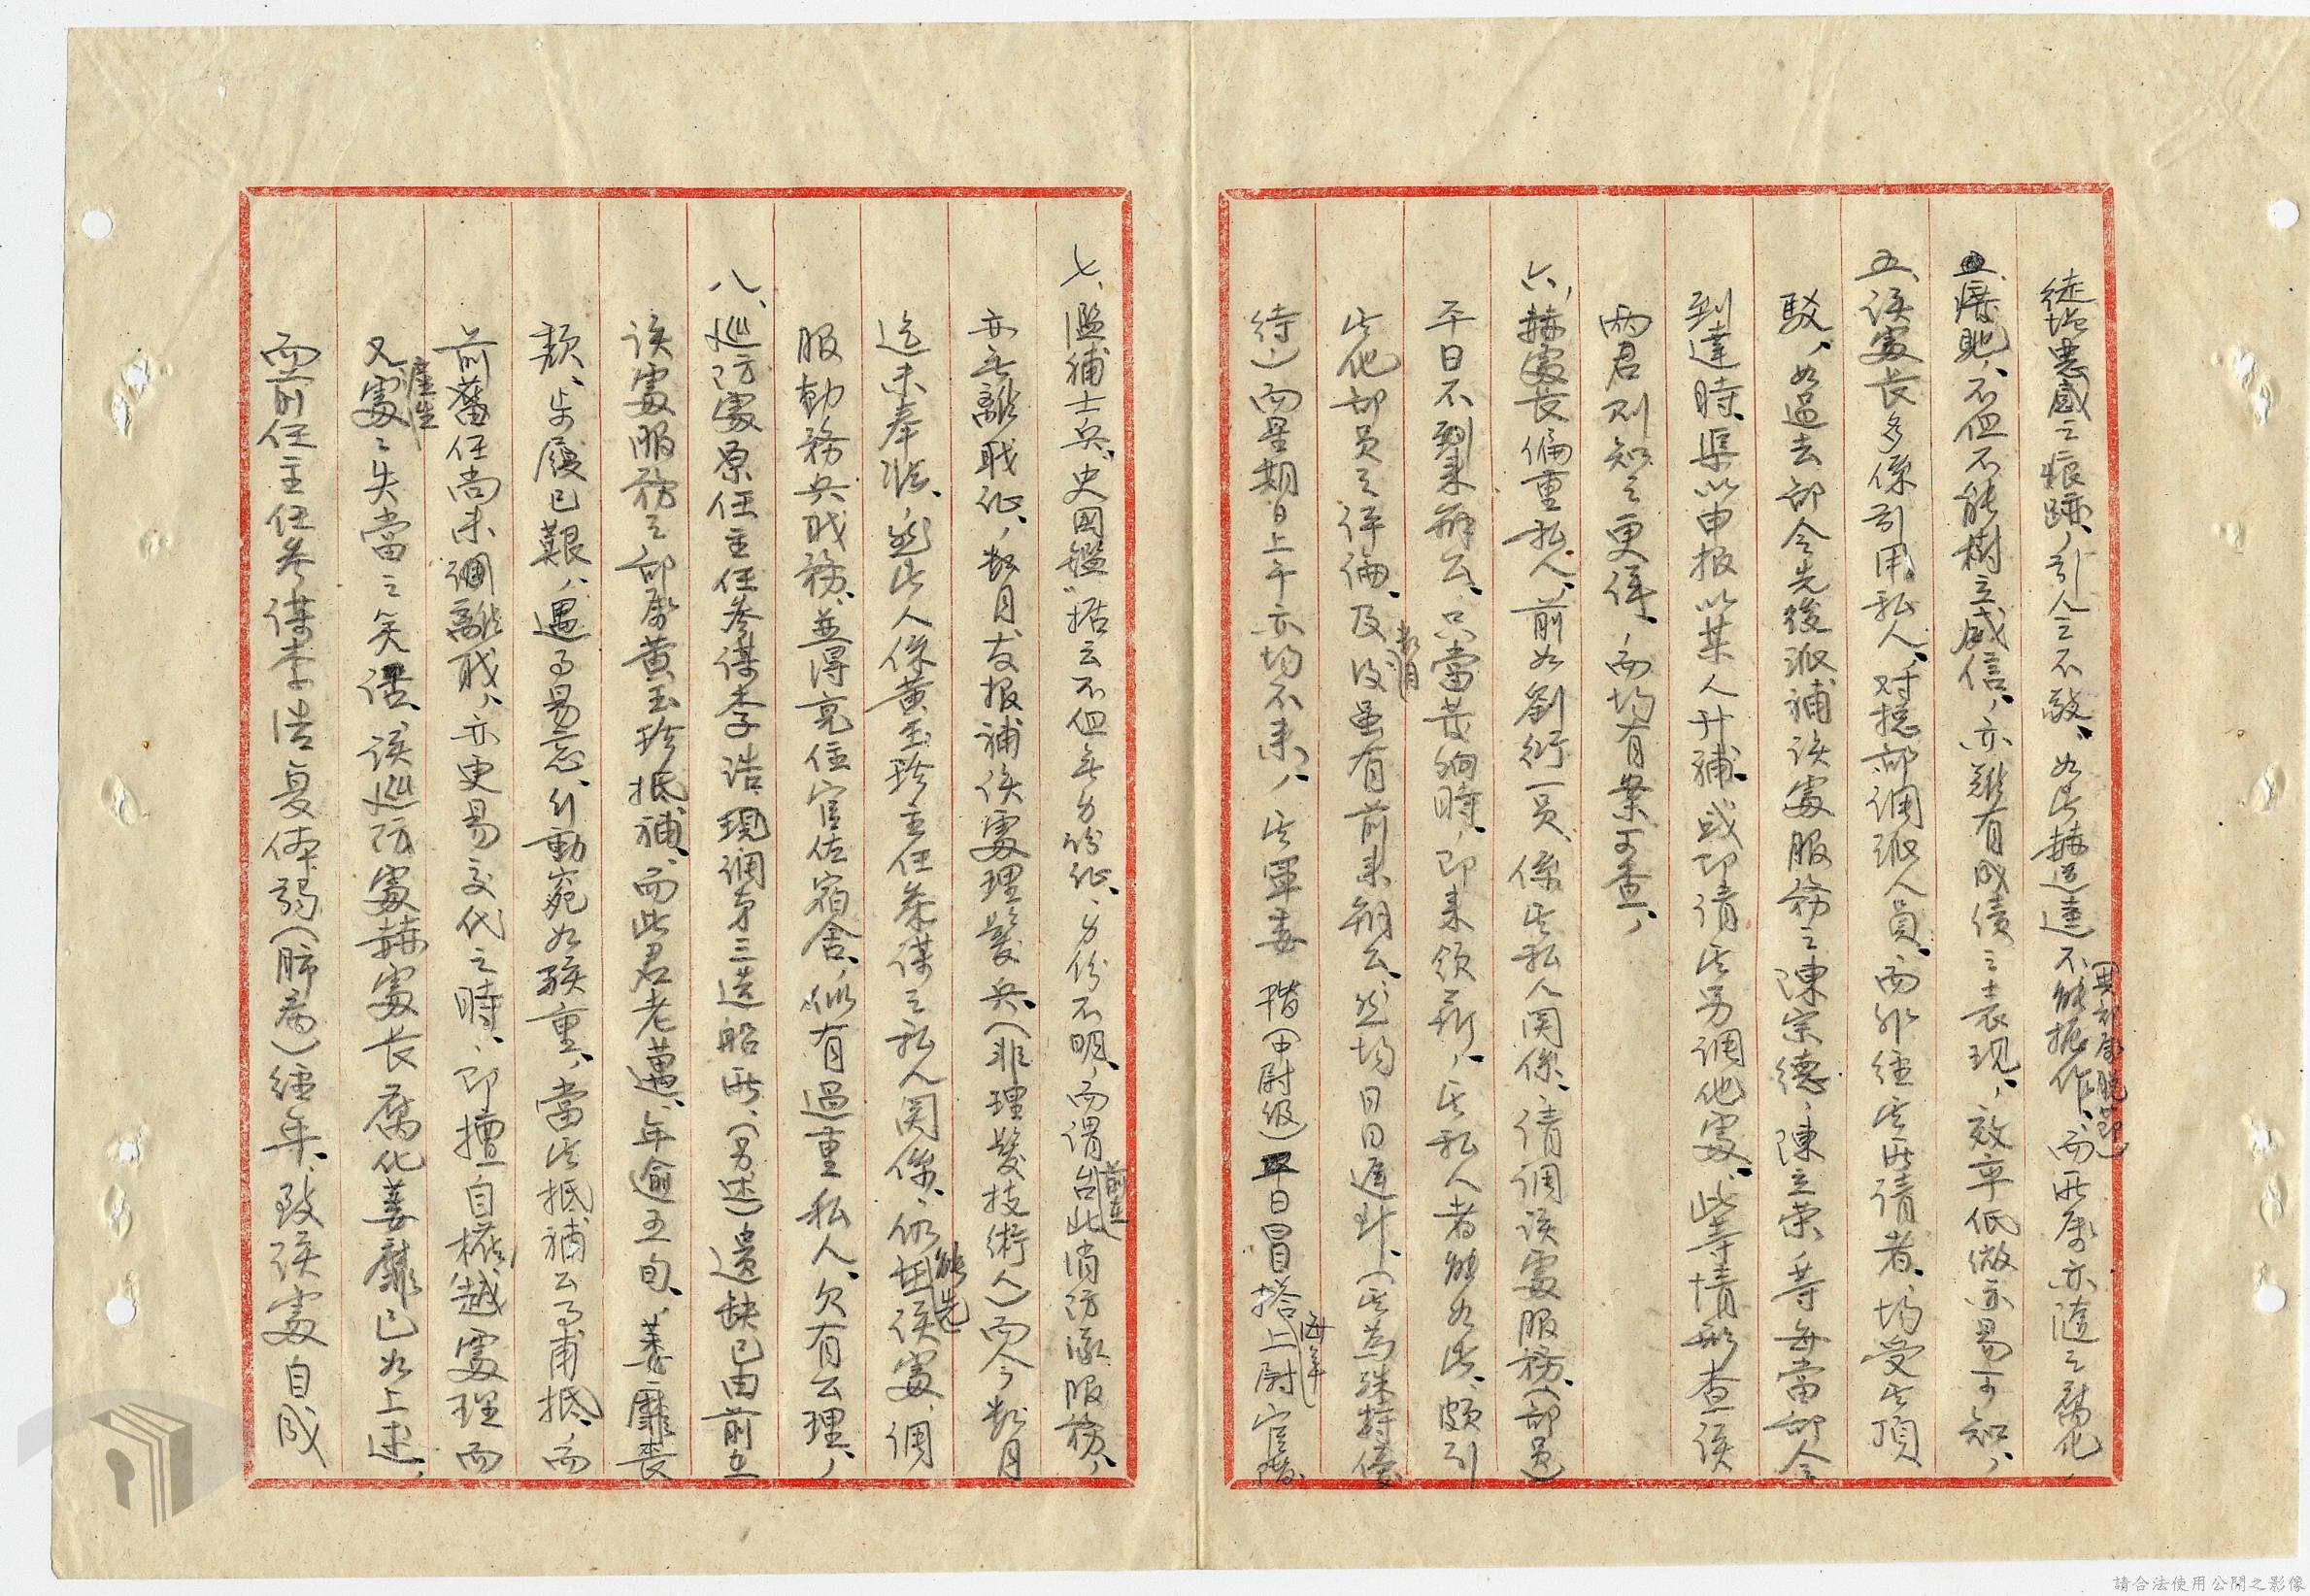 徒增惡感之痕跡，引人之不敬，如此赫道達不能振作，而所屬亦隨之腐化，
不但不能樹立威信，亦難有成績之表現，效率低微亦易可知，
五、該處長多係引用私人，對總部調派人員，而非經其所請者，均受其頂
駁，如過去部令先後派補該處服務之陳宗德，陳立榮等每當部令
到達時，渠以申报以某人升補，或即請其另調他處，此等情形查該
兩君則知之更詳，而均有案可查，
六、赫處長偏重私人，前如劉衍一員，係其私人関係，請調該處服務，(部員)
平日不到來辦公，只當發餉時，即來領薪，其私人者能如此，頗引
其他部員之評論，及後數月虽有前來辦公，然均日日遲到，(其為殊特優
待)而星期日上午亦均不來，其軍委 階(中尉級)平日冒搭海軍上尉官階
七、濫補士兵，史国鑑"据云不但無身份证，身份不明，而謂前在台北消防隊服務，
亦無離職证，數月友报補該處理髮兵，(非理髮技術人)而今數月
迄未奉准，然此人係黃玉珍主任參謀之私人関係，仍能先留該處，調
服勤務兵職務，並得竟住官佐宿舍，似有過重私人，欠有公理，
八、巡防處原任主任參謀李浩，現調第三造船所，(另述)遺缺已由前在
該處服務之部屬黃玉珍抵補，而此君老邁，年逾五旬，萎靡喪
頹，步履已艱，遇事易忘，引動宛如疾重，當其抵補公事甫抵，而
前舊任尚未調離職，亦更易交代之時，即擅自權越處理而
又產生處之失當之笑話，該巡防處赫處長腐化萎靡已如上述，
而前任主任參謀李浩复体弱(肺病)經年，致該處自成